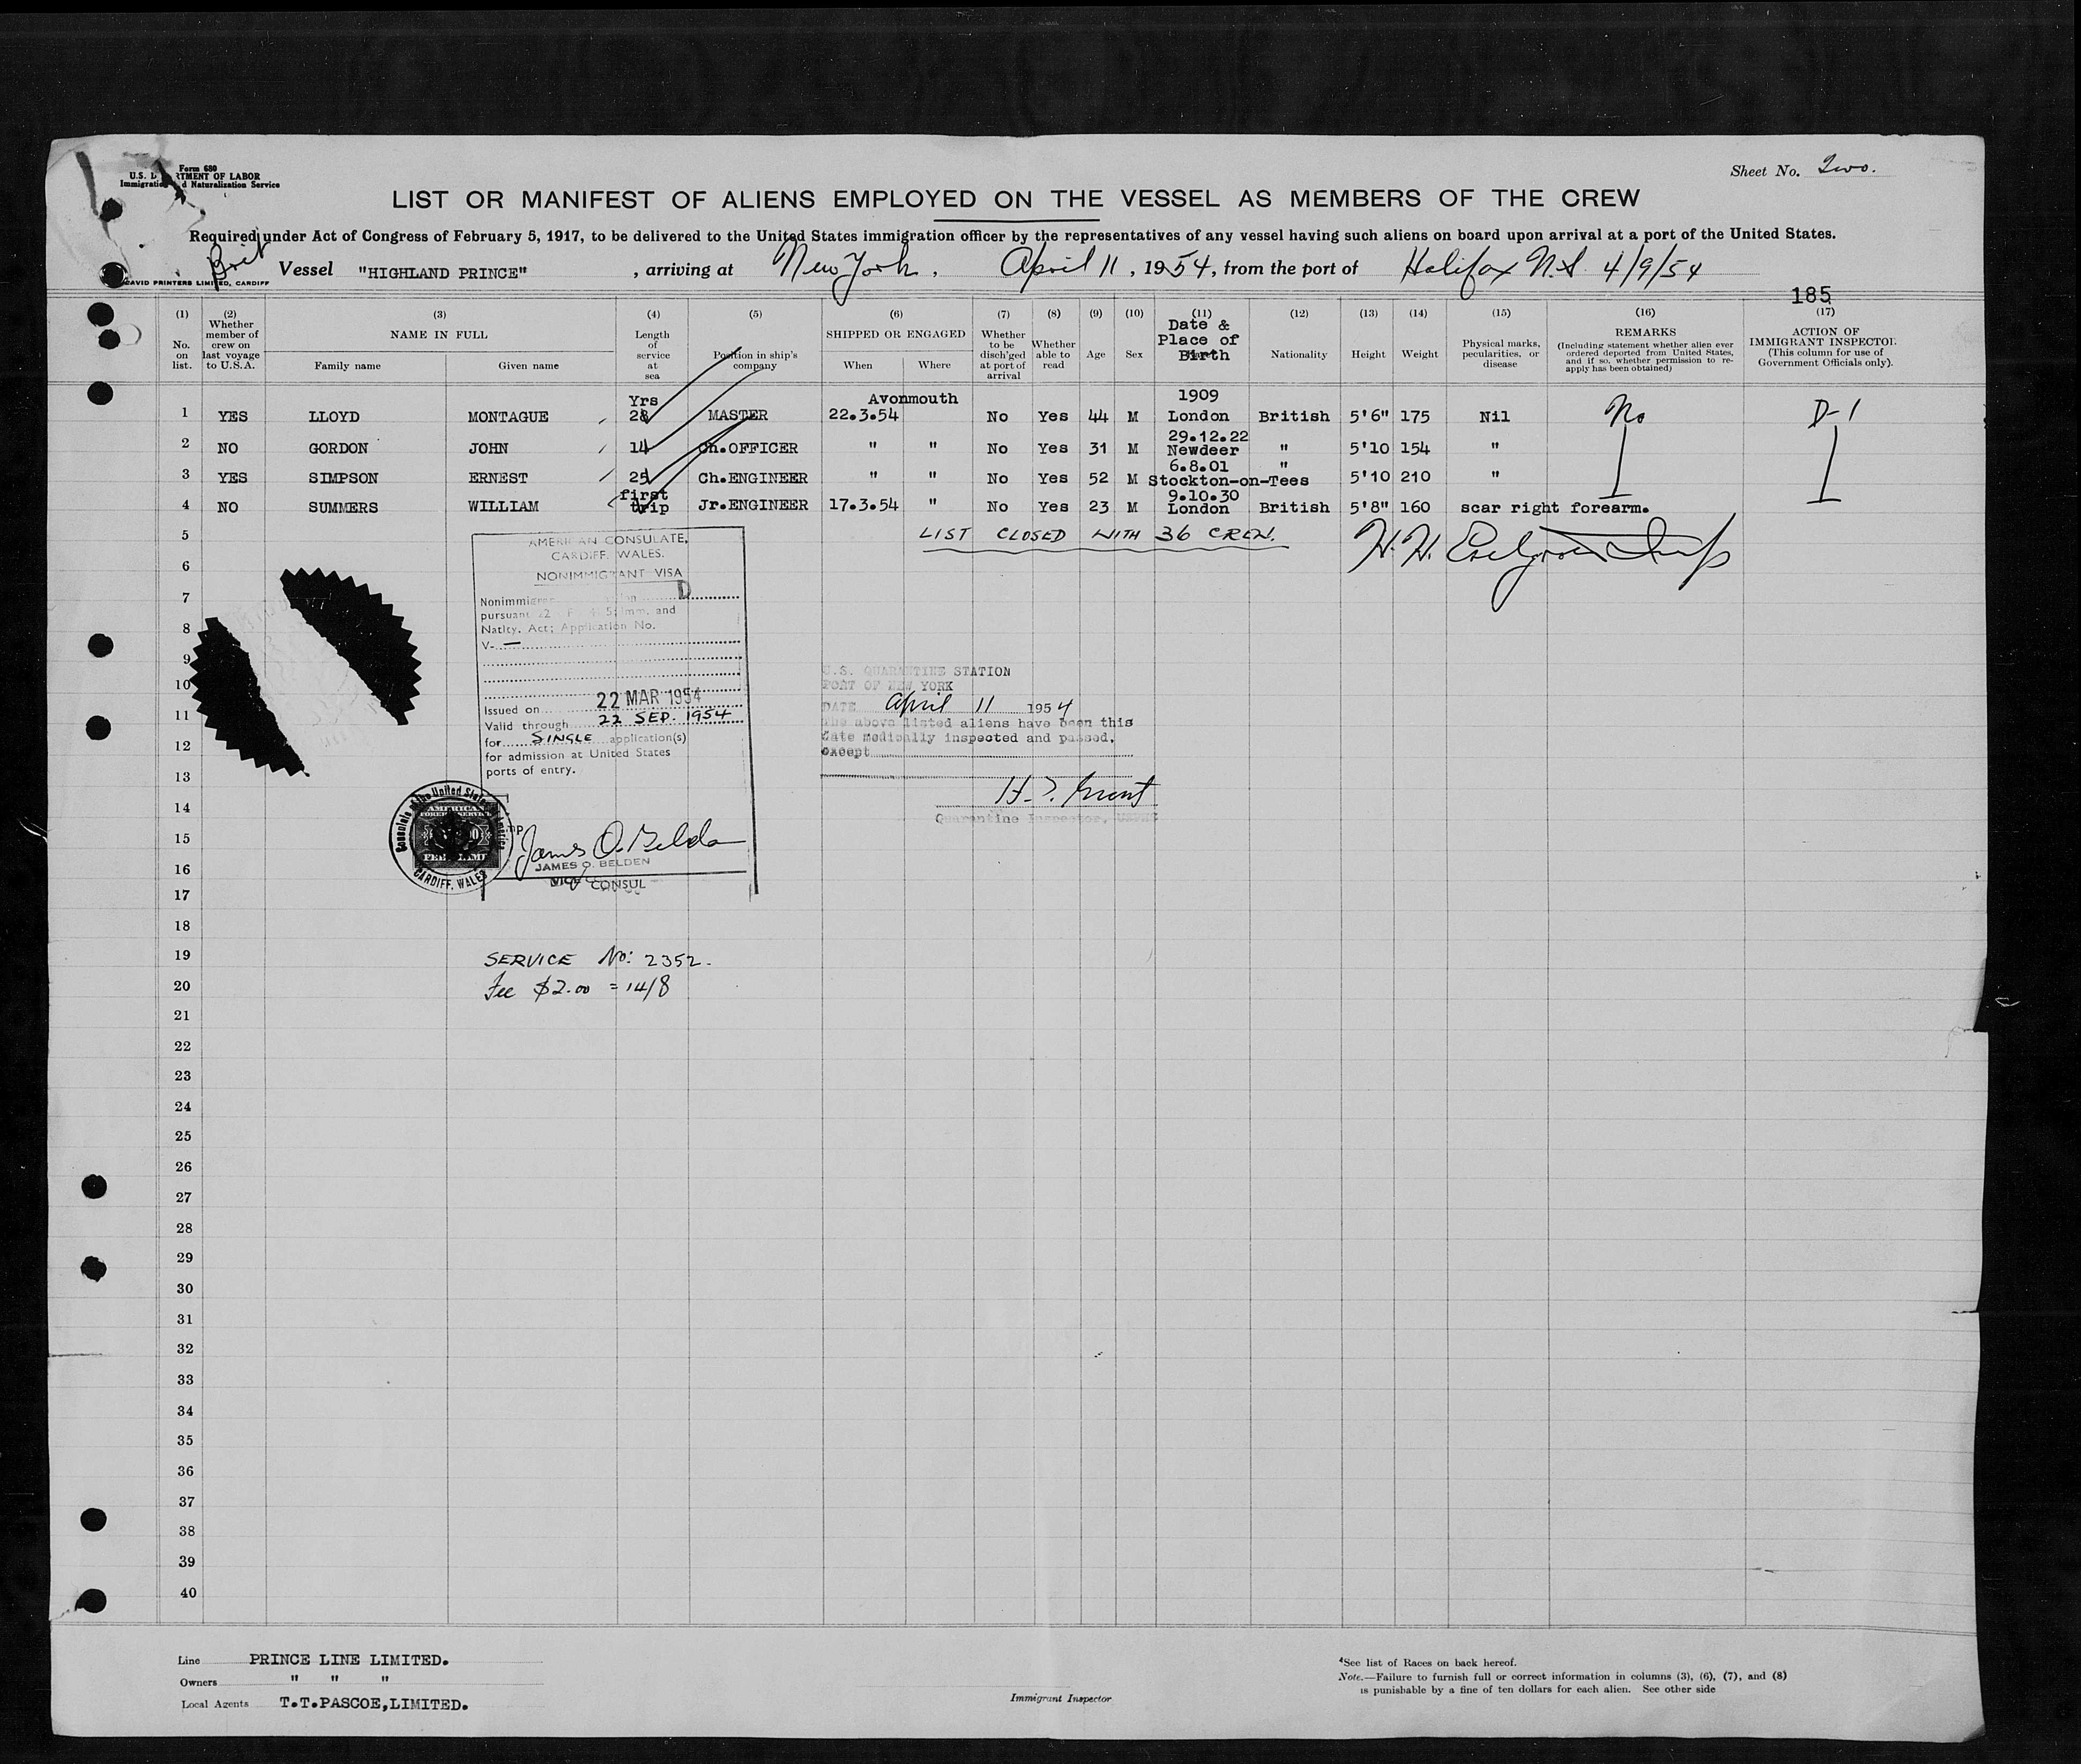 Form 680
U.S. D RTMENT OF LABOR
Immigratio d Naturalization Service
Sheet No. Two.
LIST OR MANIFEST OF ALIENS EMPLOYED ON THE VESSEL AS MEMBERS OF THE CREW
Required under Act of Congress of February 5, 1917, to be delivered to the United States immigration officer by the representatives of any vessel having such aliens on board upon arrival at a port of the United States.
Brit Vessel "HIGHLAND PRINCE" , arriving at New York. April 11 , 1954, from the port of Halifax N.S. 4/9/54
DAVID PRINTERS LIMITED, CARDIFF
185
(1) (2) (3) (4) (5) (6) (7) (8) (9) (10) (11) (12) (13) (14) (15) (16) (17)
No. on list.
Whether member of crew on last voyage to U.S.A.
NAME IN FULL
Family name Given name
Length of service at sea
Position in ship's company
SHIPPED OR ENGAGED
When Where
Whether to be disch'ged at port of arrival
Whether able to read
Age
Sex
Date & Place of Birth
Nationality
Height
Weight
Physical marks, pecularities, or disease
REMARKS
(Including statement whether alien ever ordered deported from United States, and if so, whether permission to re-apply has been obtained)
ACTION OF IMMIGRANT INSPECTOR
(This column for use of Government Officials only).
Yrs Avonmouth 1909
1 YES LLOYD MONTAGUE 28 MASTER 22.3.54 No Yes 44 M London British 5'6" 175 Nil No D-1
29.12.22
2 NO GORDON JOHN 14 Ch.OFFICER " " No Yes 31 M Newdeer " 5'10 154 "
6.8.01 "
3 YES SIMPSON ERNEST 25 Ch.ENGINEER " " No Yes 52 M Stockton-on-Tees 5'10 210 "
first 9.10.30
4 NO SUMMERS WILLIAM trip Jr.ENGINEER 17.3.54 " No Yes 23 M London British 5'8" 160 scar right forearm.
5 LIST CLOSED WITH 36 CREW.
6
7
8
9
10
11
12
13
14
15
16
17
18
19
20
21
22
23
24
25
26
27
28
29
30
31
32
33
34
35
36
37
38
39
40
AMERICAN CONSULATE,
CARDIFF, WALES.
NONIMMIGRANT VISA
D
Nonimmigr
pursuant 22 Imm. and
Natlty. Act; Application No.
V- —
Issued on 22 MAR 1954
Valid through 22 SEP. 1954
for SINGLE application(s)
for admission at United States
ports of entry.
James O. Belden
JAMES O. BELDEN
VICE CONSUL
Consulate of the United States of America
CARDIFF, WALES
U.S. QUARANTINE STATION
PORT OF NEW YORK
DATE April 11 1954
The above listed aliens have been this
date medically inspected and passed,
except
H. Grant
Quarantine Inspector, USPHS
SERVICE No: 2352.
Fee $2.00 = 14/8
Line PRINCE LINE LIMITED.
Owners " " "
Local Agents T.T.PASCOE,LIMITED.
Immigrant Inspector
⁴See list of Races on back hereof.
Note.—Failure to furnish full or correct information in columns (3), (6), (7), and (8)
is punishable by a fine of ten dollars for each alien. See other side